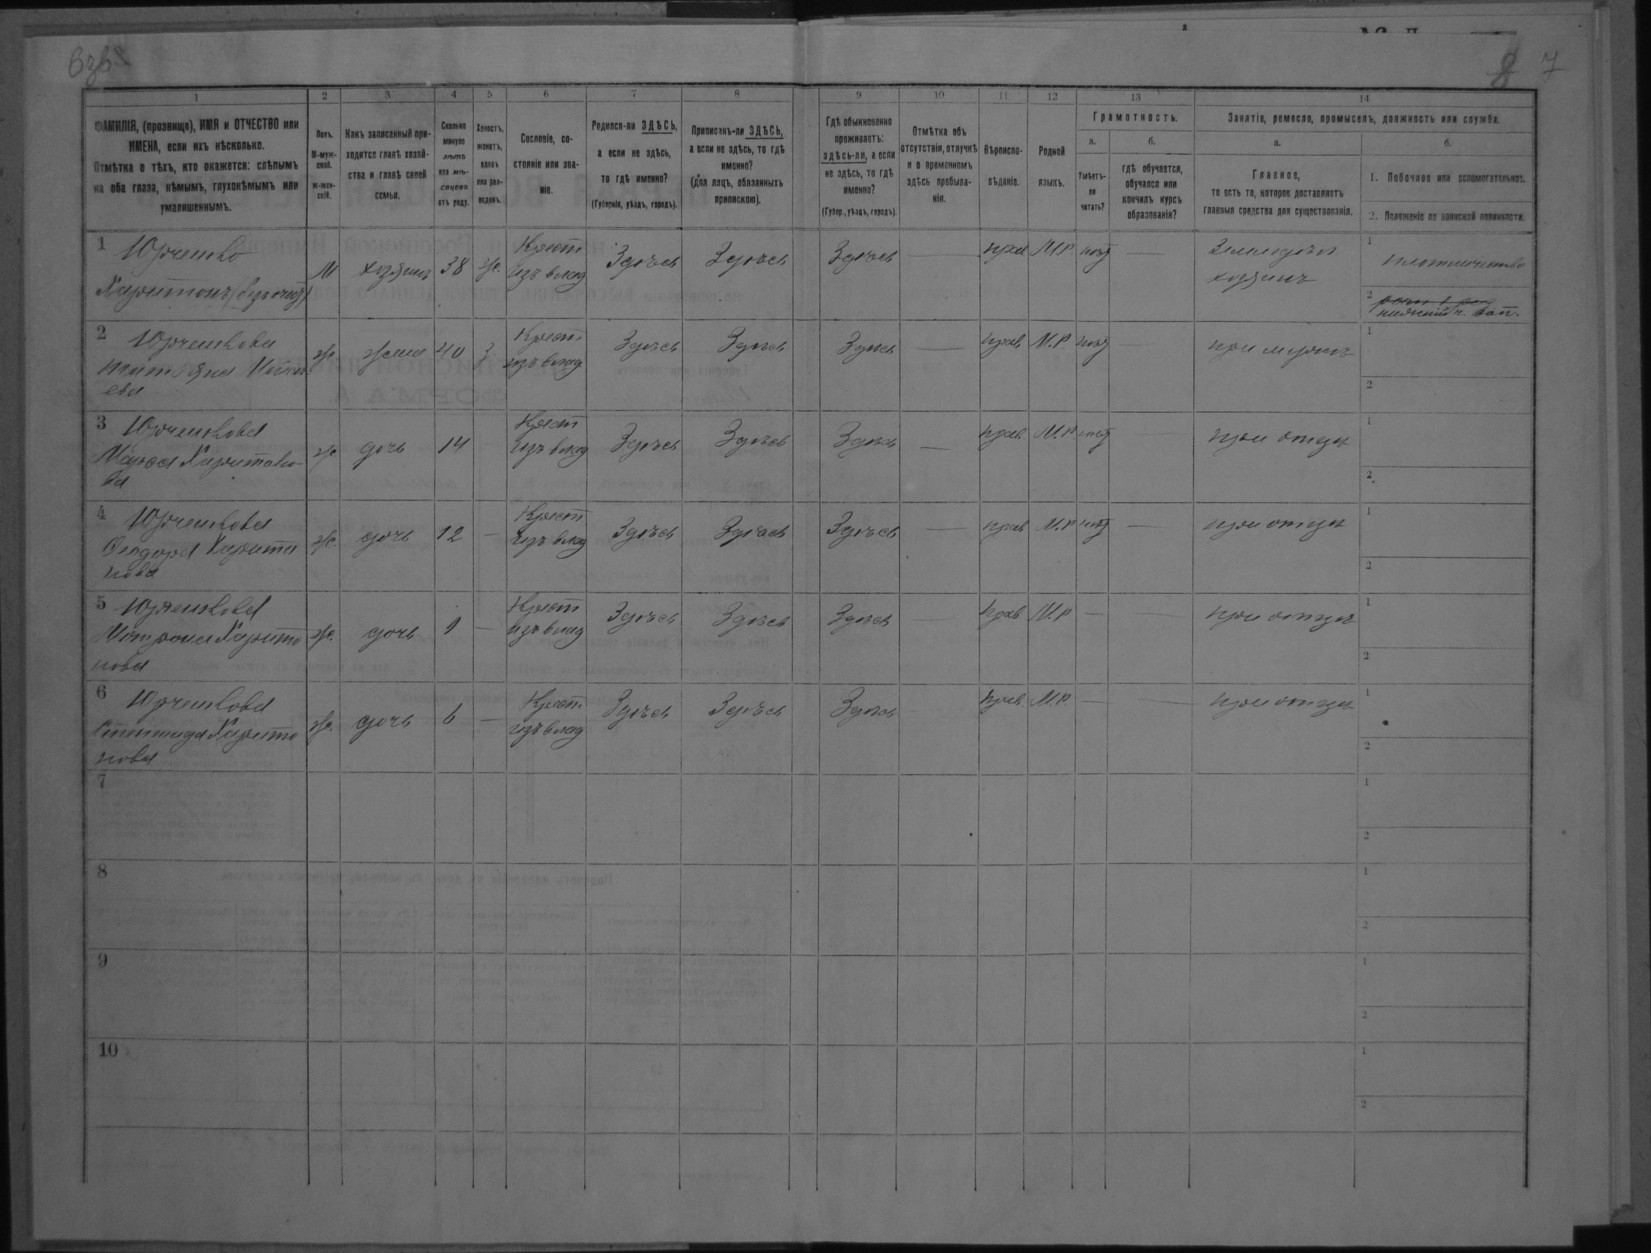 8 7
1 2 3 4 5 6 7 8 9 10 11 12 13 14
ФАМИЛІЯ, (прозвище), ИМЯ и ОТЧЕСТВО или
ИМЕНА, если ихъ нѣсколько.
Отмѣтка о тѣхъ, кто окажется: слѣпымъ
на оба глаза, нѣмымъ, глухонѣмымъ или
умалишеннымъ.
Полъ.
М-муж-
ской.
Ж-жен-
скій.
Какъ записанный при-
ходится главѣ хозяй-
ства и главѣ своей
семьи.
Сколько
минуло
лѣтъ
или мѣ-
сяцевъ
отъ роду.
Холостъ,
женатъ,
вдовъ
или раз-
веденъ.
Сословіе, со-
стояніе или зва-
ніе.
Родился-ли ЗДѢСЬ,
а если не здѣсь,
то гдѣ именно?
(Губернія, уѣздъ, городъ).
Приписанъ-ли ЗДѢСЬ,
а если не здѣсь, то гдѣ
именно?
(Для лицъ, обязанныхъ
припискою).
Гдѣ обыкновенно
проживаетъ:
здѣсь-ли, а если
не здѣсь, то гдѣ
именно?
(Губер., уѣздъ, городъ).
Отмѣтка объ
отсутствіи, отлучкѣ
и о временномъ
здѣсь пребыва-
ніи.
Вѣроиспо-
вѣданіе.
Родной
языкъ.
Грамотность.
а. б.
Умѣетъ-
ли
читать?
Гдѣ обучается,
обучался или
кончилъ курсъ
образованія?
Занятіе, ремесло, промыселъ, должность или служба.
а. б.
Главное,
то есть то, которое доставляетъ
главныя средства для существованія.
1. Побочное или вспомогательное.
2. Положеніе по воинской повинности.
1 Юрченко
Харитонъ
М хозяинъ 38 ж. Крест. изъ влад Здѣсь Здѣсь Здѣсь — прав М.Р. нѣт —
хозяинъ
1 плотничество
2
2 Юрченкова
Татьяна
ева
ж жена 40 з Крест изъ влад Здѣсь Здѣсь Здѣсь — прав М.Р нѣт — при мужѣ
1
2
3 Юрченкова
Марья Харитоно-
ва
ж дочь 14 — Крест изъ влад Здѣсь Здѣсь Здѣсь — прав М.Р нѣт — при отцѣ
1
2
4 Юрченкова
Ѳедора Харито
нова
ж дочь 12 — Крест изъ влад Здѣсь Здѣсь Здѣсь — прав М.Р нѣт — при отцѣ
1
2
5 Юрченкова
Матрона Харито
нова
ж. дочь 9 — Крест изъ влад Здѣсь Здѣсь Здѣсь — прав М.Р — — при отцѣ
1
2
6 Юрченкова
Харито
нова
ж. дочь 6 — Крест изъ влад Здѣсь Здѣсь Здѣсь — прав М.Р. — — при отцѣ
1
2
7
1
2
8
1
2
9
1
2
10
1
2